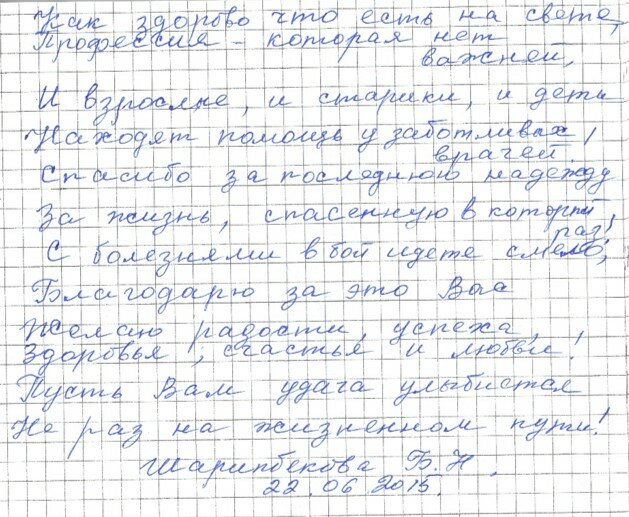 Как здорово что есть на свете,
Профессия - которая нет
важней,
И взрослые, и старики, и дети
Находят помощь у заботливых
врачей!
Спасибо за последнюю надежду
За жизнь, спасенную в который
раз!
С болезнями в бой идете смело,
Благодарю за это Вас
Желаю радости, успеха,
Здоровья, счастья и любви!
Пусть Вам удача улыбнется
Не раз на жизненном пути!
Шарипбекова Б.Н.
22.06.2015.